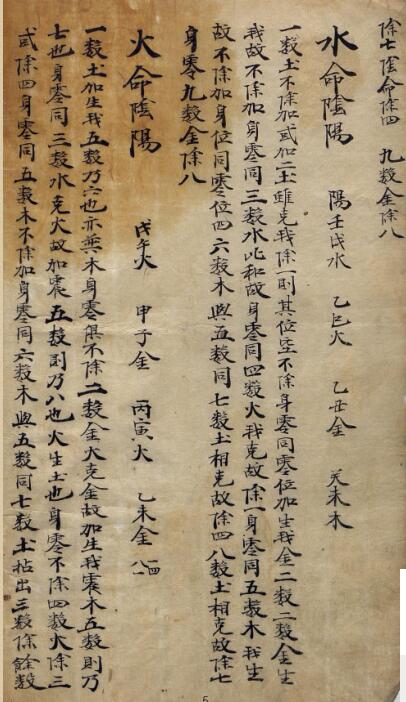 除七陰命除四　九数金除八
水命陰陽　陽壬戌水　乙巳火　乙丑金　癸未木
一数土不除加或加二土雖克我除一則其位空不除身零同零位加生我金二数二数金生
我故不除加身零同三数水比和故身零同四数火我克故除一身零同五数木我生
故不除加身位同零位四六数木與五数同七数土相克故除四八数土相克故除七
身零九数金除八
火命陰陽　戊午火　甲子金　丙寅火　乙未金　一四八一
一数土加生我五数乃六也亦無木身零俱不除二数金火克金故加生我震木五数則乃
七也身零同三数水克火故加震五数則乃八也火生土也身零不除四数火除三
或除四身零同五数木不除加身零同六数木與五数同七数土拈出三数除餘数